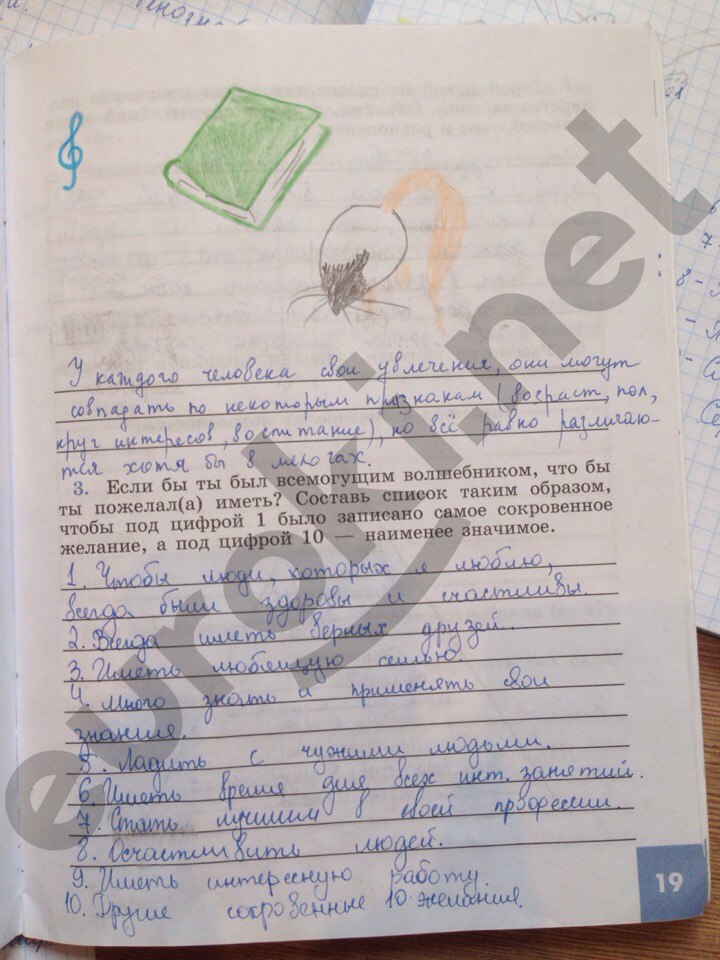 У каждого человека свои увлечения, они могут
совпадать по некоторым признакам (возраст, пол,
круг интересов, воспитание), но всё равно различаю-
тся хотя бы в мелочах.
3. Если бы ты был всемогущим волшебником, что бы
ты пожелал(а) иметь? Составь список таким образом,
чтобы под цифрой 1 было записано самое сокровенное
желание, а под цифрой 10 — наименее значимое.
1. Чтобы люди, которых я люблю,
всегда были здоровы и счастливы.
2. Всегда иметь верных друзей.
3. Иметь любящую семью.
4. Много знать и применять свои
знания.
5. Ладить с чужими людьми.
6. Иметь время для всех инт. занятий.
7. Стать лучшим в своей профессии.
8. Осчастливить людей.
9. Иметь интересную работу.
10. Другие сокровенные 10 желания.
19
euroki.net